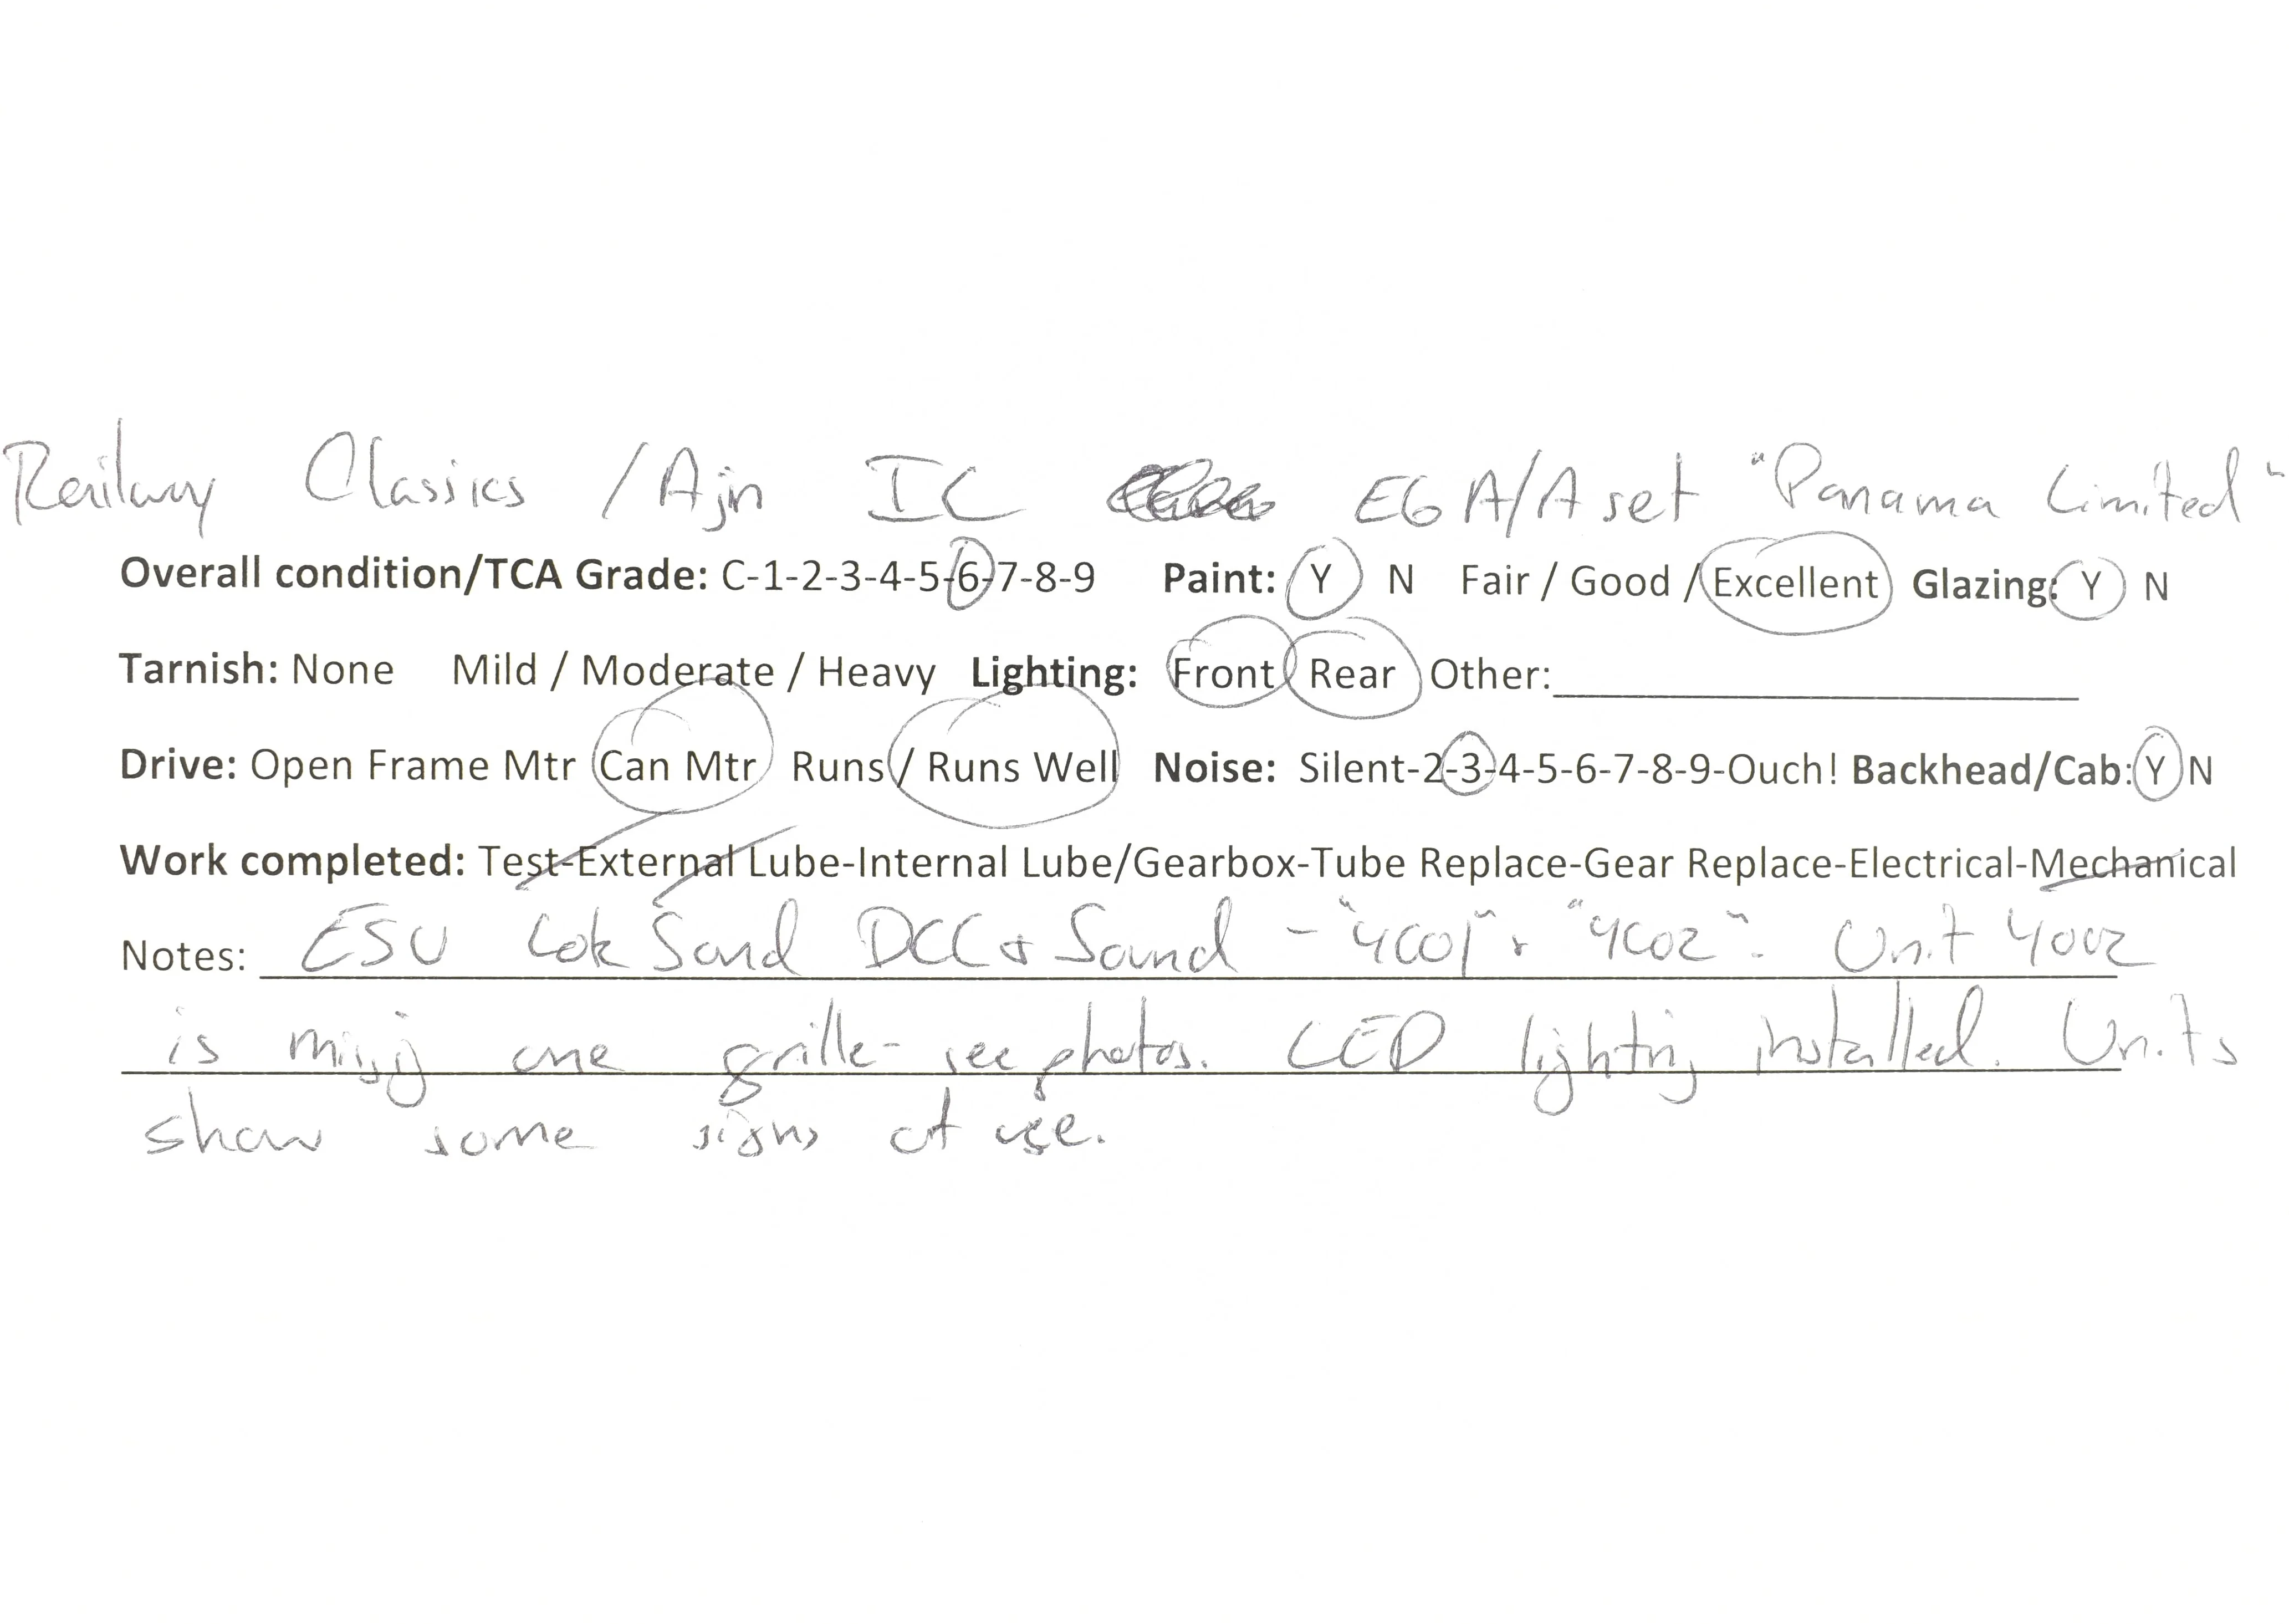 Railway Classics / Ajin IC E6 A/A set "Panama Limited"
Overall condition/TCA Grade: C-1-2-3-4-5-6-7-8-9 Paint: Y N Fair / Good / Excellent Glazing: Y N
Tarnish: None Mild / Moderate / Heavy Lighting: Front Rear Other:
Drive: Open Frame Mtr Can Mtr Runs / Runs Well Noise: Silent-2-3-4-5-6-7-8-9-Ouch! Backhead/Cab: Y N
Work completed: Test-External Lube-Internal Lube/Gearbox-Tube Replace-Gear Replace-Electrical-Mechanical
Notes: ESU Lok Sound DCC + Sound - "4001" + "4002". Unit 4002
is missing one grille - see photos. LED lighting installed. Units
show some signs of use.